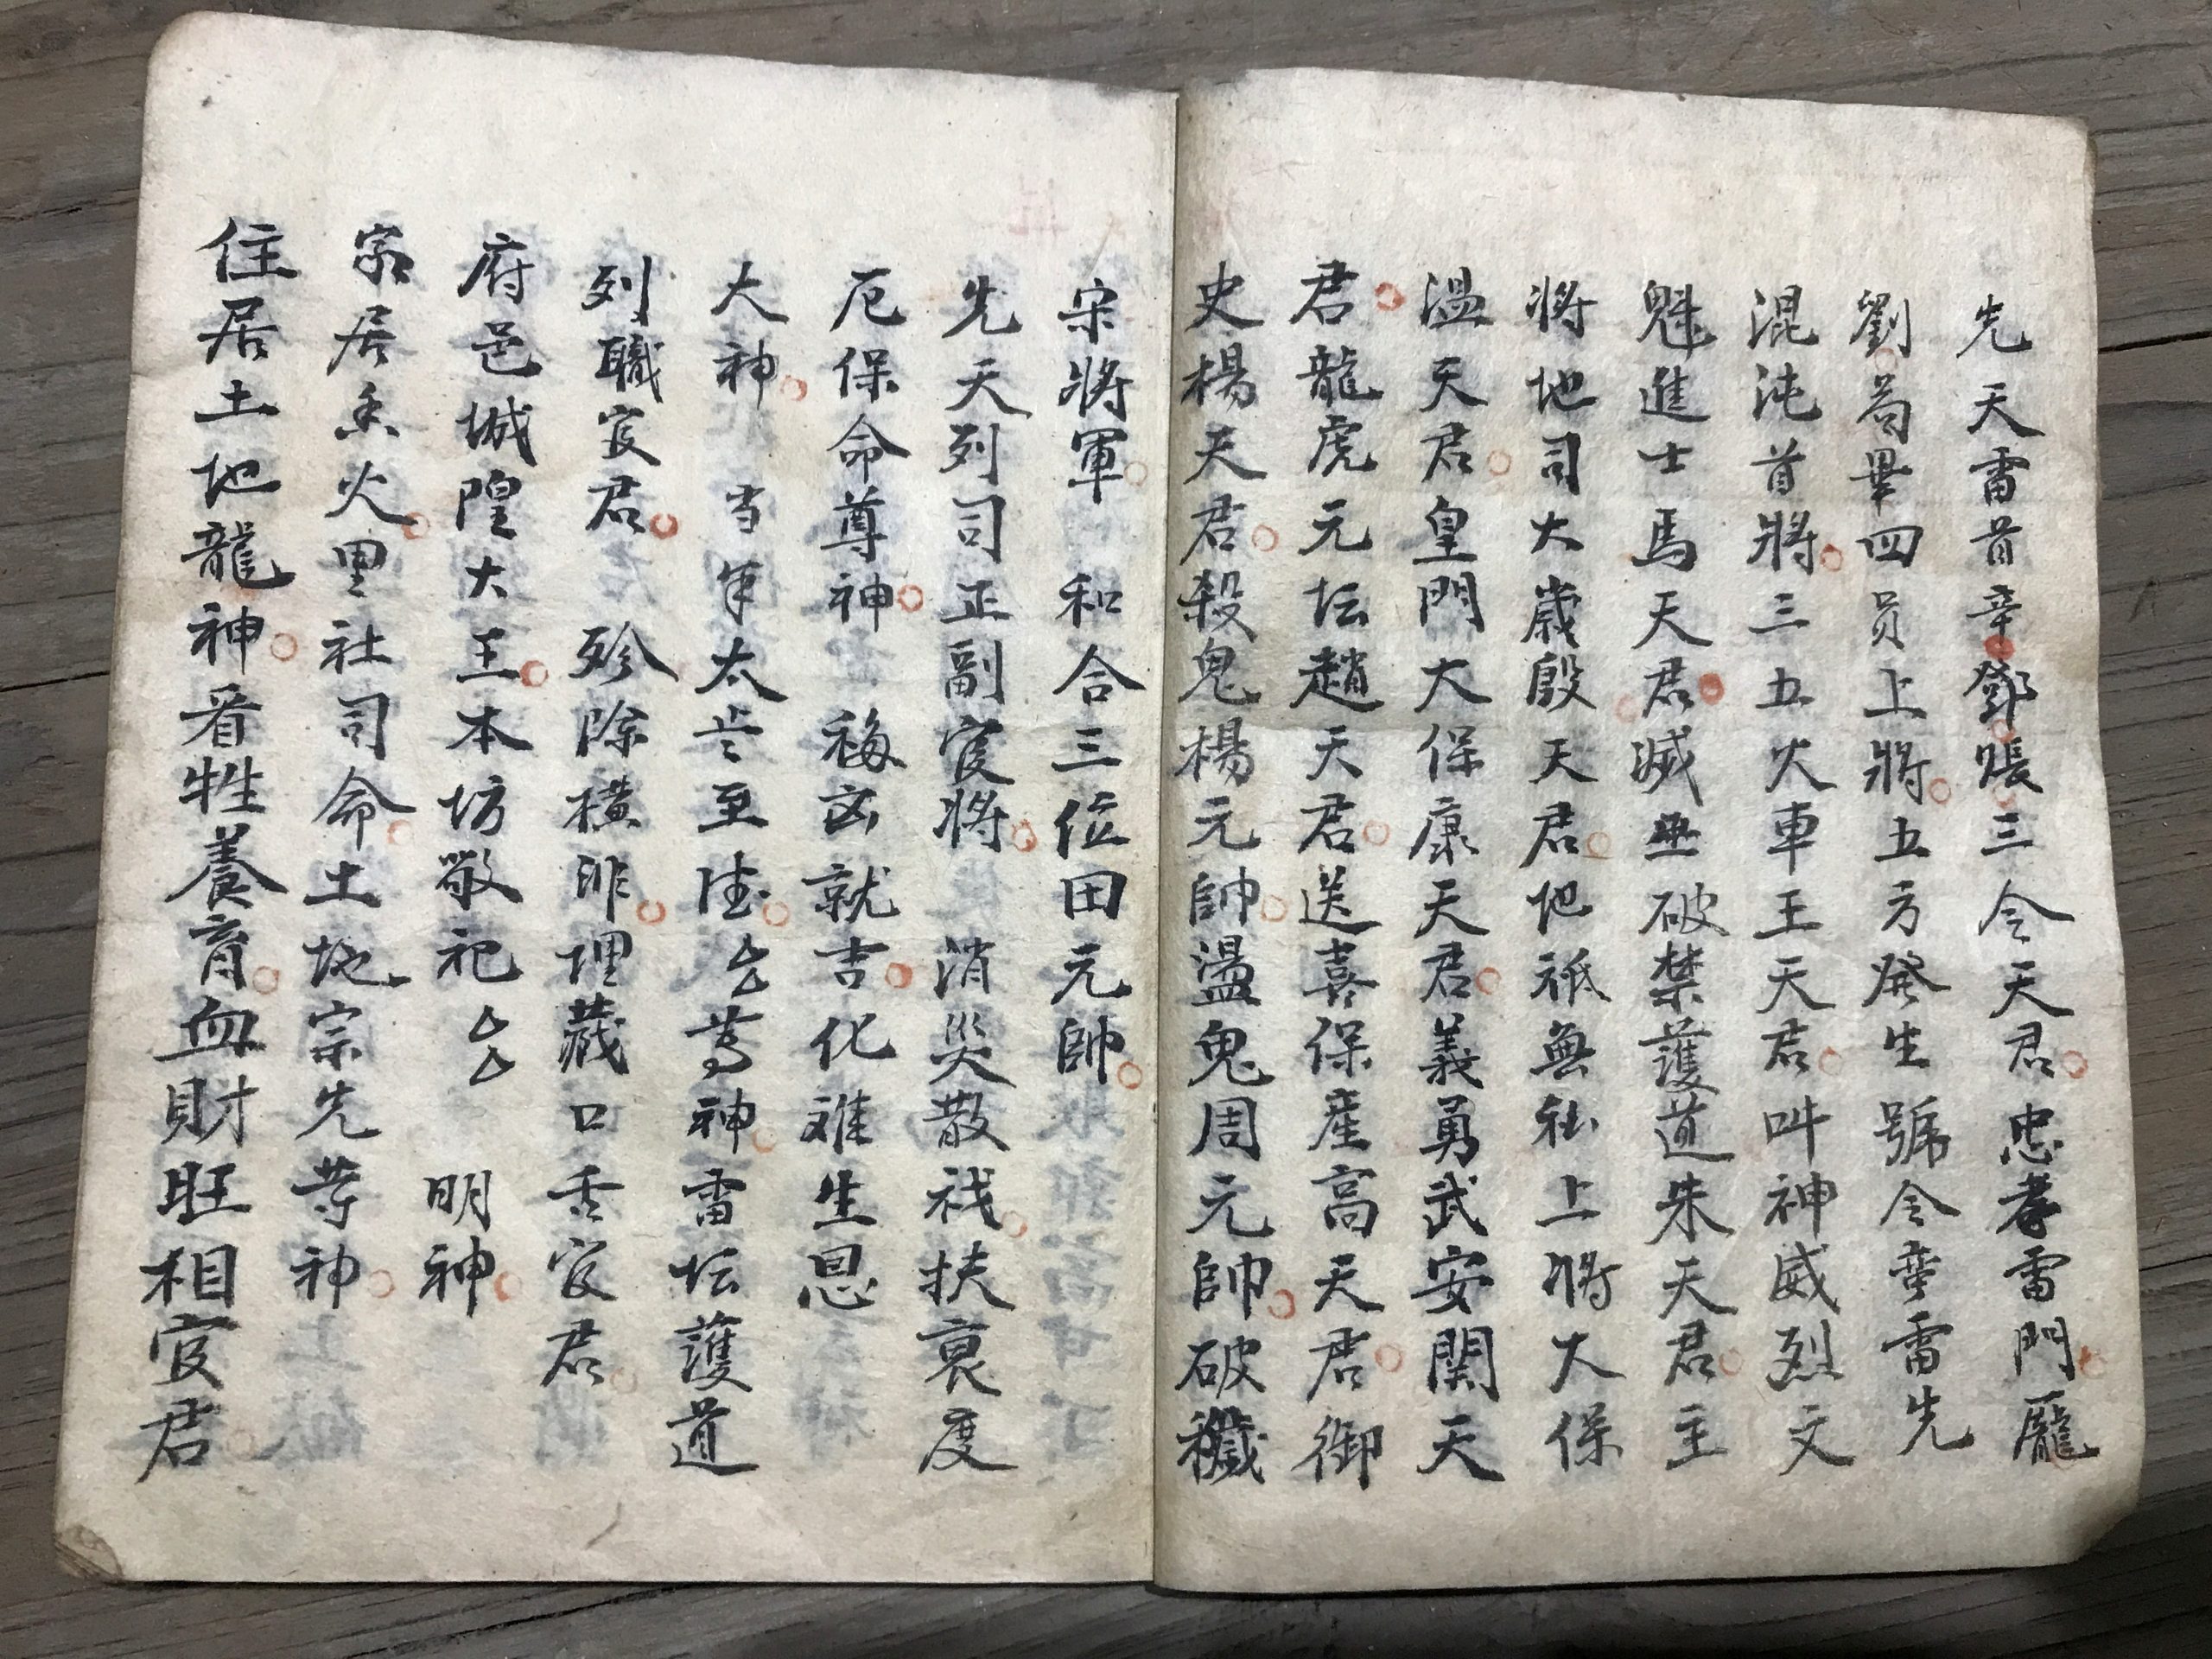 先天雷首辛鄧張三令天君忠孝雷門龐
劉苟畢四员上將五方發生號令雷先
混沌首將三五火車王天君叫神威烈文
魁進士馬天君滅巫破禁護道朱天君主
將地司大歲殷天君地祇無私上將大保
溫天君皇門大保康天君義勇武安關天
君龍虎元坛趙天君送喜保產高天君御
史楊天君殺鬼楊元帥盪鬼周元帥破穢
宋將軍 和合三位田元帥
先天列司正副官將 消災散禍扶衰度
厄保命尊神 移凶就吉化难生恩
大神 当年太歲至德尊神雷坛護道
列職官君 殄除橫非埋藏口舌官君
府邑城隍大王本坊敬祀 明神
家居香火里社司命土地宗先等神
住居土地龍神看牲養育血財旺相官君